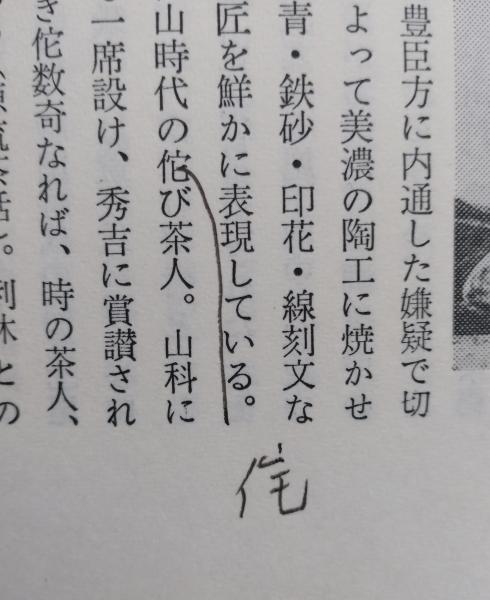 豊臣方に内通した嫌疑で切
よって美濃の陶工に焼かせ
青・鉄砂・印花・線刻文な
匠を鮮かに表現している。
山時代の佗び茶人。山科に
一席設け、秀吉に賞讃され
き佗数奇なれば、時の茶人、
流茶話』。利休との
侘